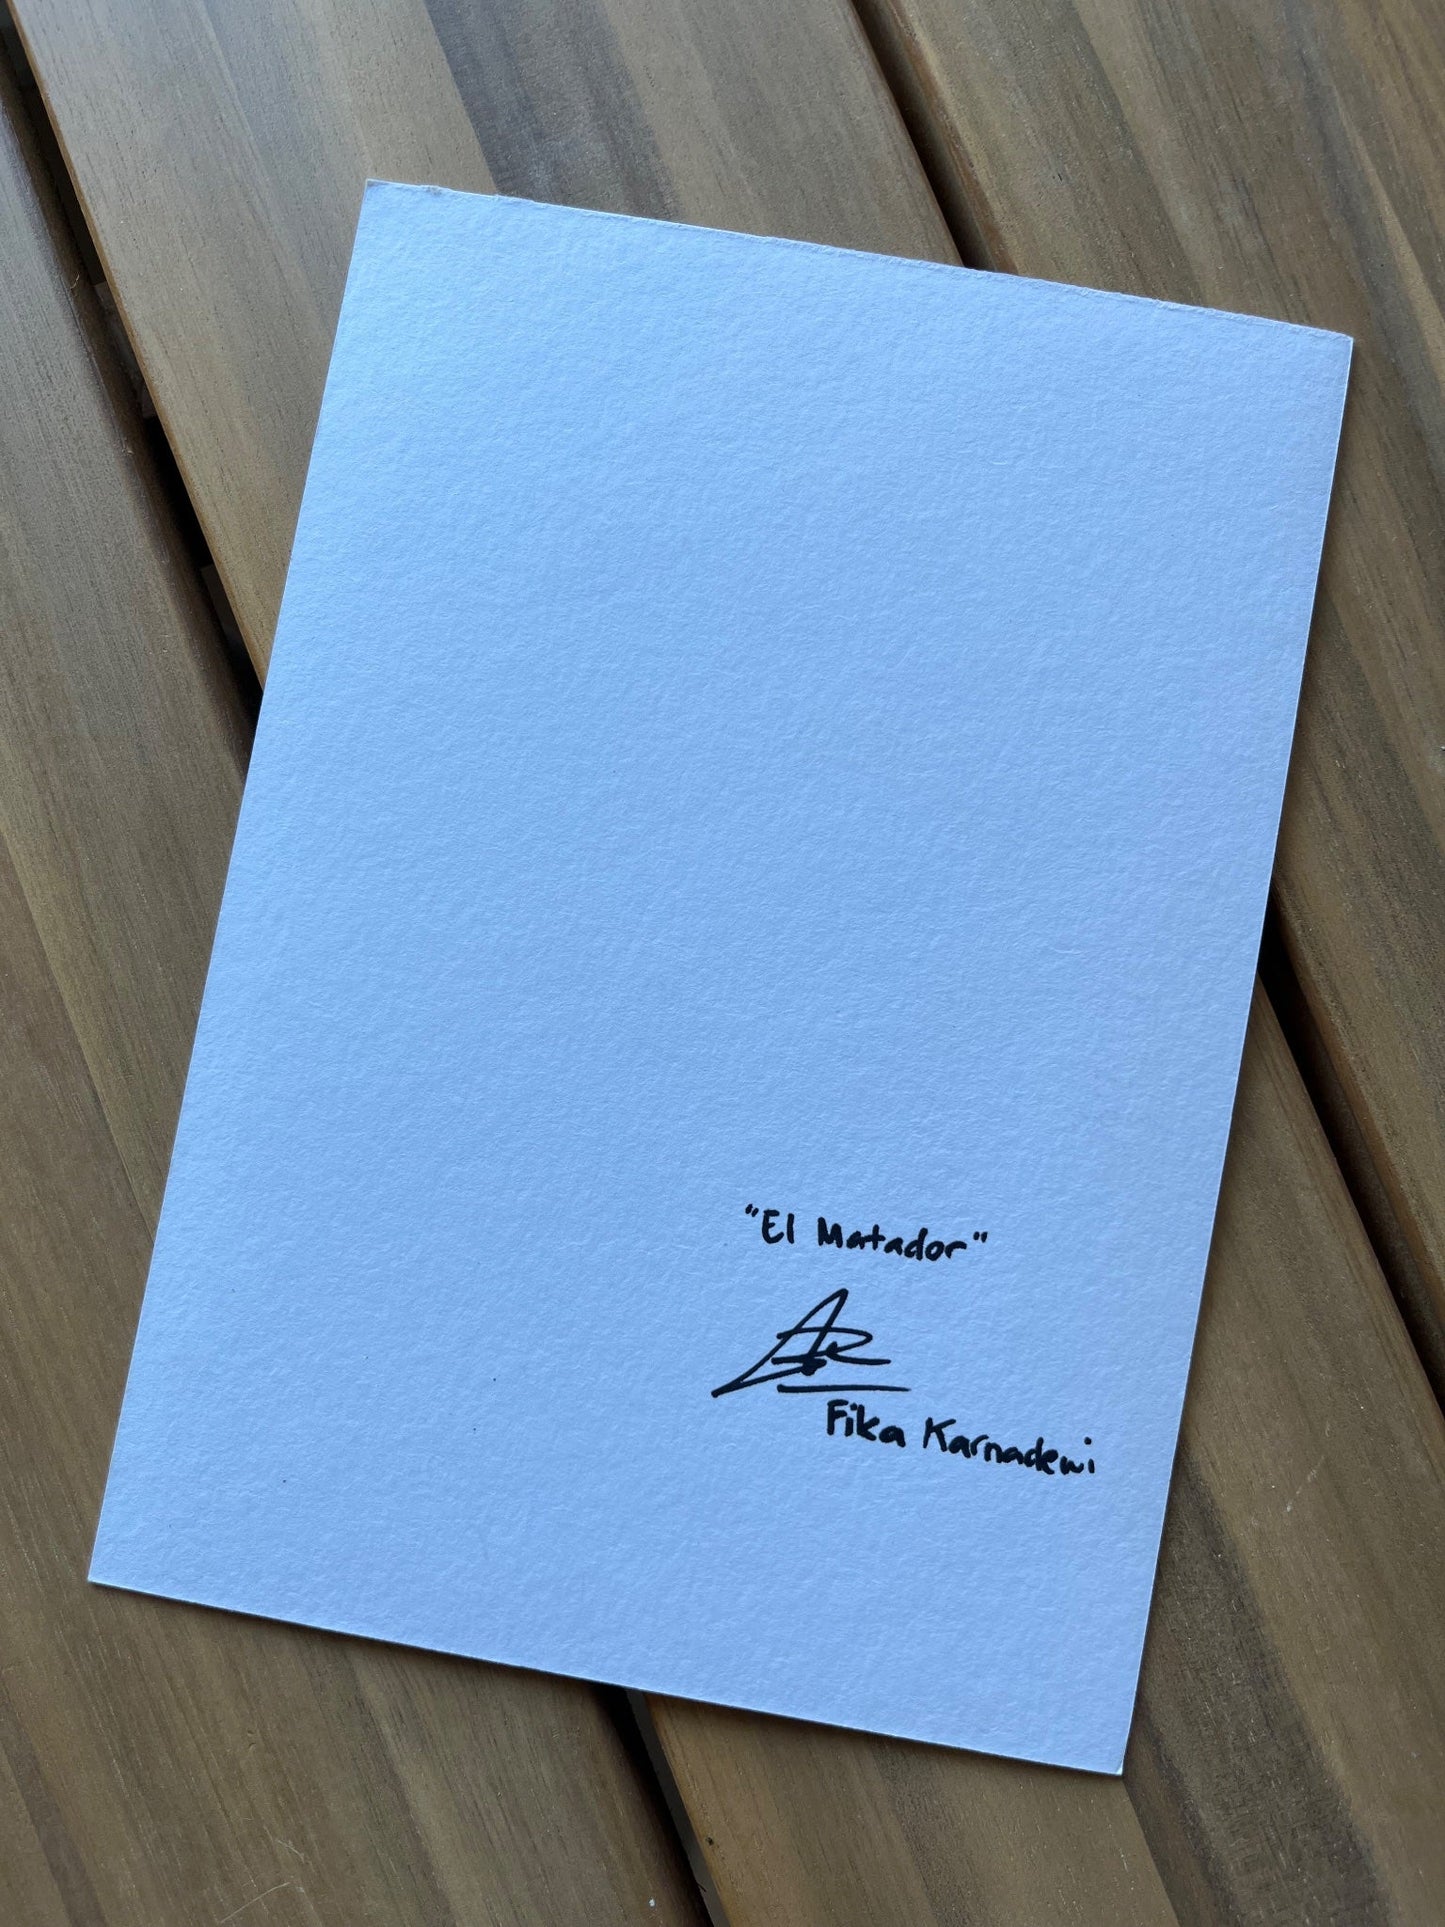 "El Matador"
Fika Karnadewi